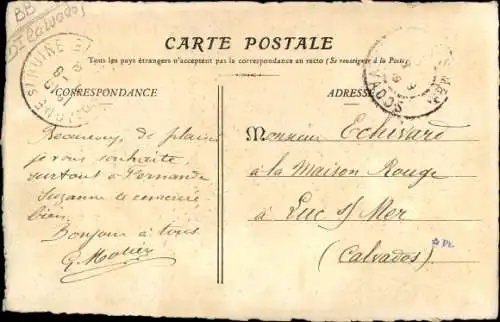 BB
Dt Calvados
CARTE POSTALE
Tous les pays étrangers n'acceptent pas la correspondance au recto (Se renseigner à la Poste)
CORRESPONDANCE
ADRESSE
Beaucoup de plaisir
je vous souhaite,
surtout à Fernande
Suzanne te remercie
bien.
Bonjour à tous
Monsieur Echivard
à la Maison Rouge
à Luc s/ Mer
(Calvados)